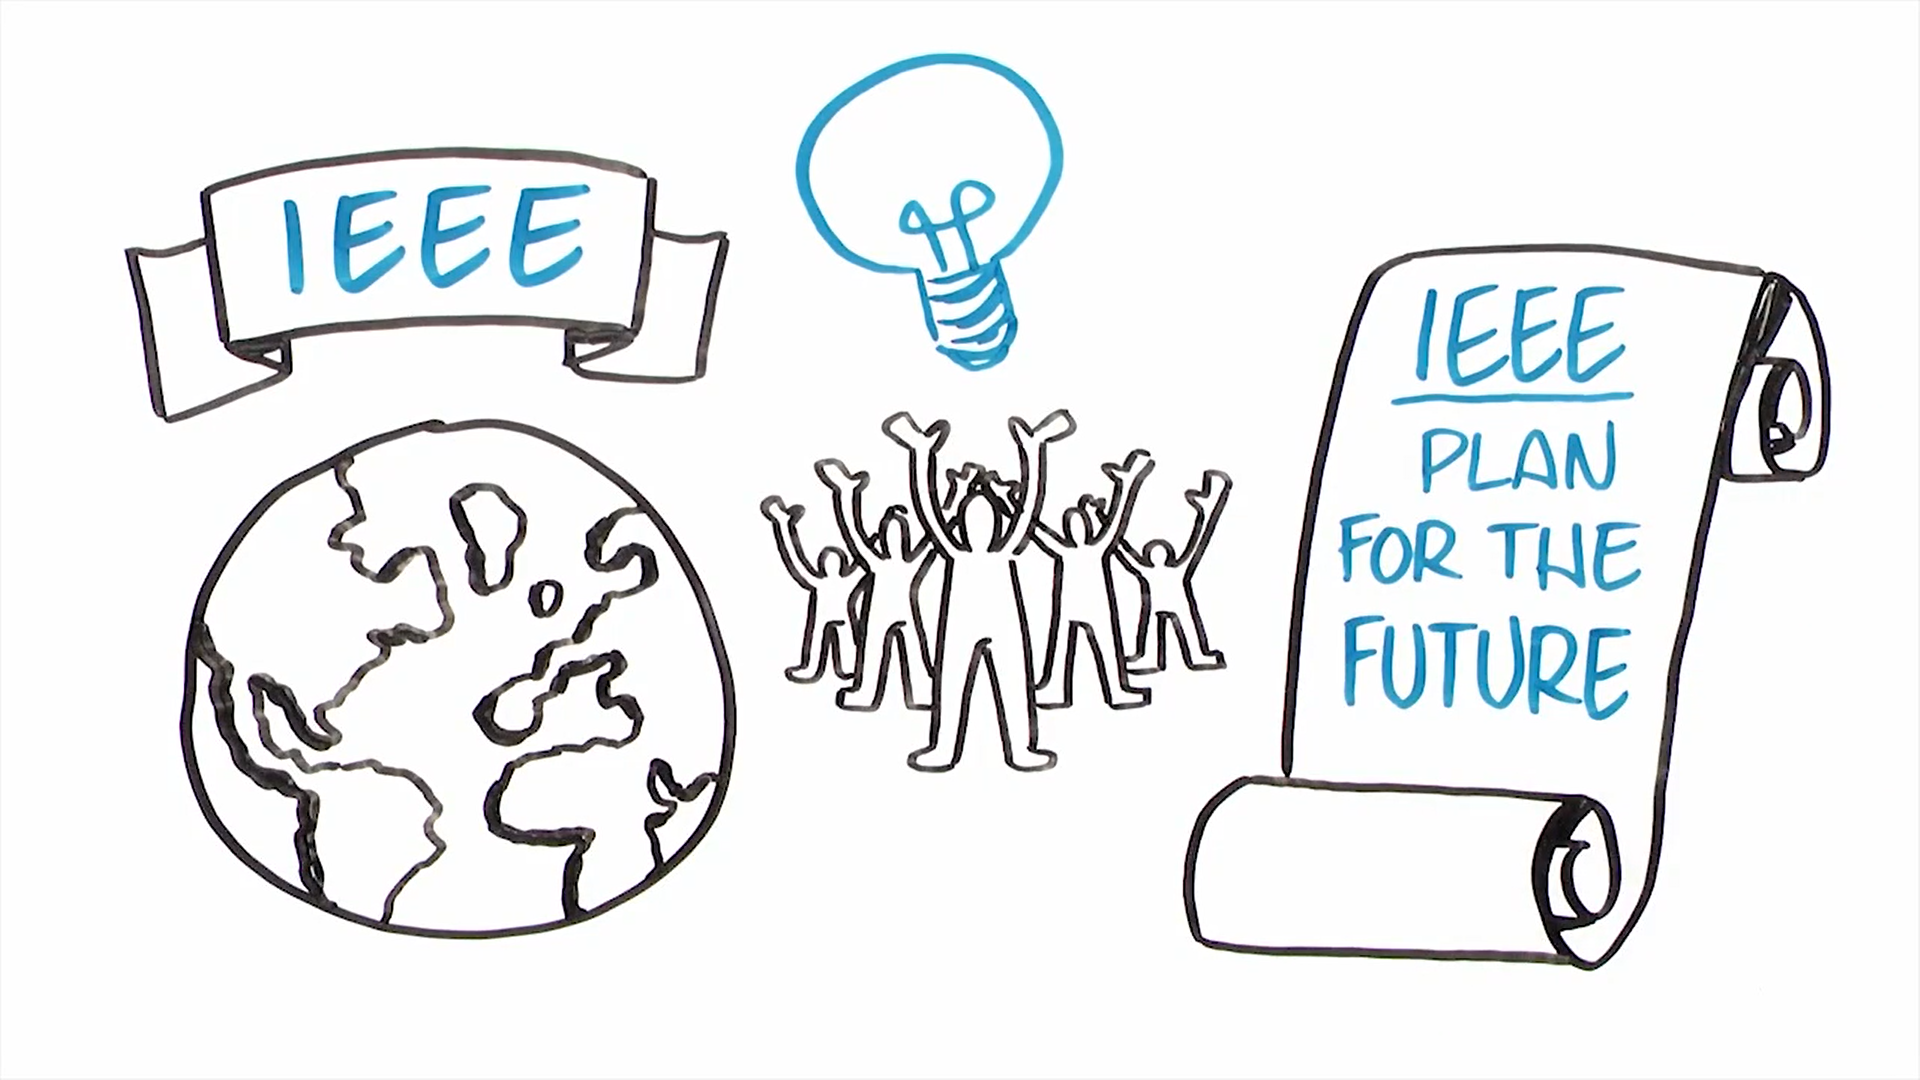 IEEE
IEEE
PLAN
FOR THE
FUTURE